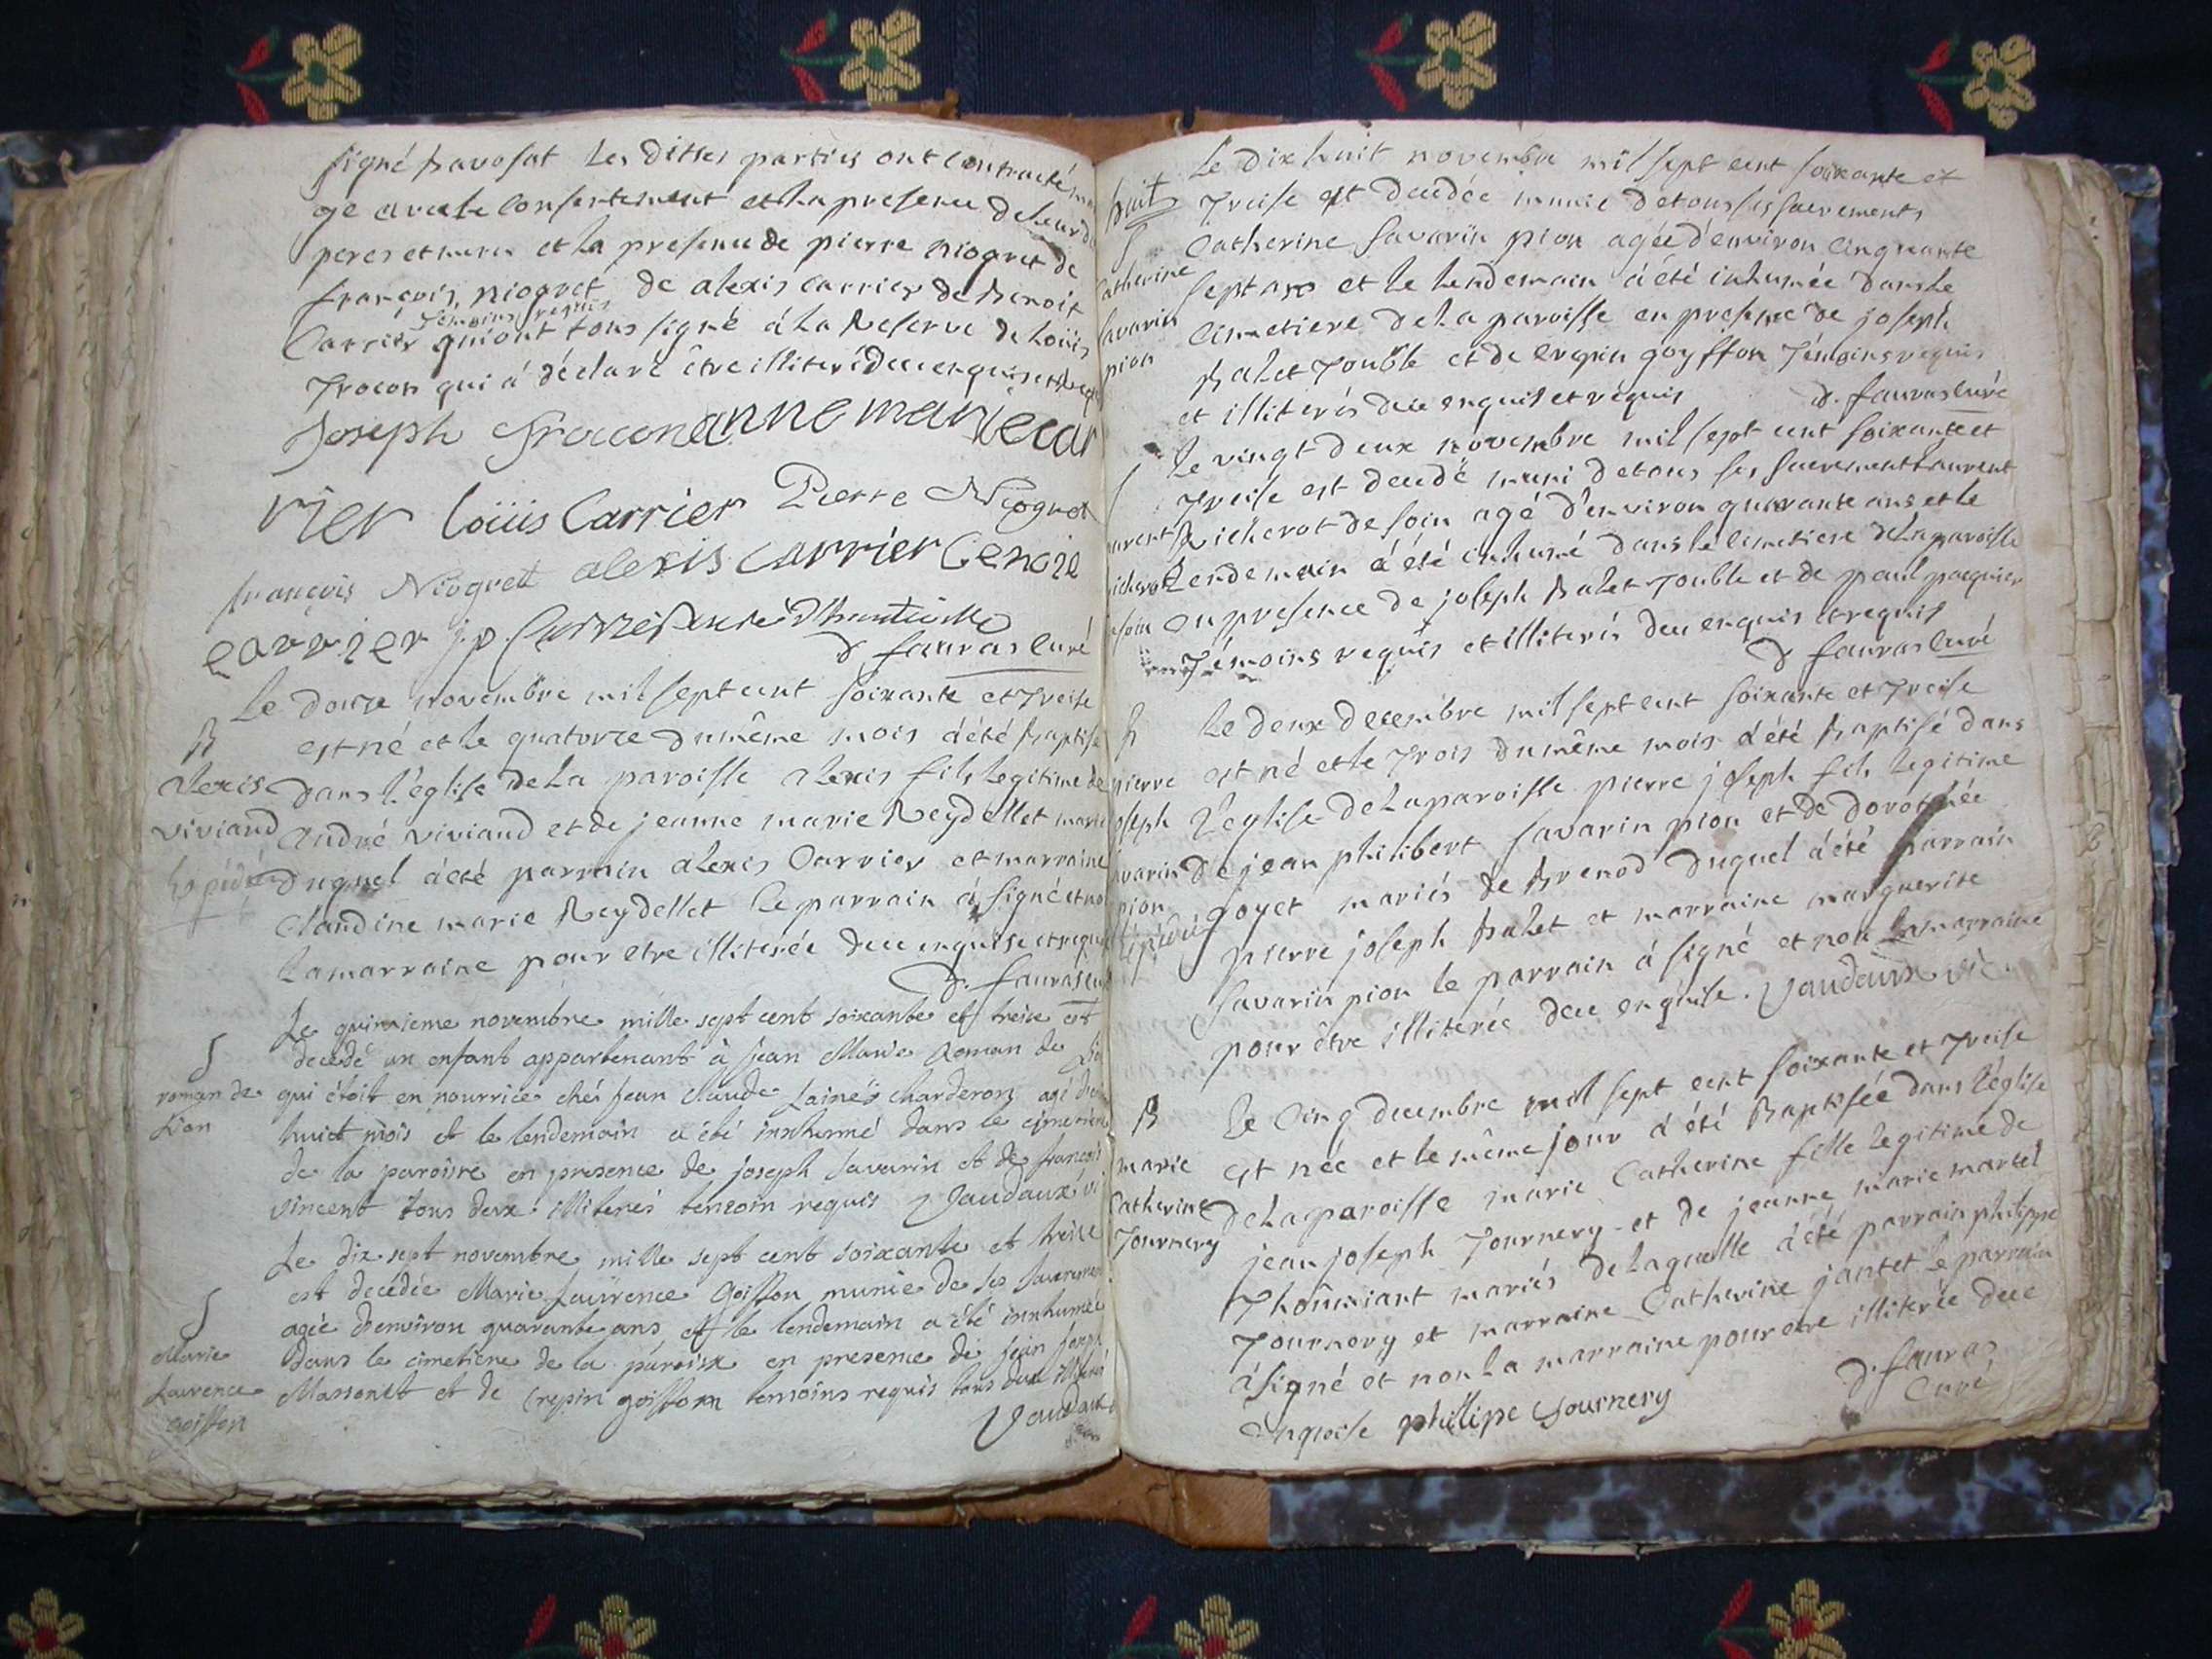 signé ravosat les dittes parties ont contracté
ge avec le consentement et la presence de leur
peres et meres et la presence de pierre niogret de
françois niogret de alexis carrier de Benoit
témoins requis
Carrier qui ont tous signé á la Reserve de Loüis
Trocon qui á déclaré être illiteré de ce enquis et
Joseph Trocon anne marie car
rier Loüis Carrier Pierre Niogret
françois Niogret alexis carrier Benoie
carrier j. p.
D. fauras curé
Le douze novembre mil sept cent soixante et treise
B
est né et le quatorze du même mois á été Baptisé
alexis
dans l'église de La paroisse alexis fils legitime de
viviand
André viviand et de jeanne marie Reydellet mariés
duquel á été parrain alexis Carrier et marraine
Claudine marie Reydellet le parrain á signé et non
la marraine pour etre illiterée de ce enquise et requise
D. fauras curé
Le quinzieme novembre mille sept cent soixante et treise est
S
decedé un enfant appartenant à jean Marie Roman de
roman de
qui étoit en nourrice chés jean claude Lainé charderon agé
Lion
huict mois et le lendemain a été innhumé dans le cimetiere
de la paroisse en presence de joseph savarin et de francois
vincent tous deux illiterés temoin requis Vaudaux vi
Le dix sept novembre mille sept cent soixante et treise
S
est decedée Marie Laurence Goiffon munie de ses sacremens
agée d'environ quarante ans et le lendemain a été innhumée
Marie
dans le cimetiere de la paroisse en presence de jean joseph
Laurence
Massonet et de Crepin goiffon temoins requis tous deux illiterés
goiffon
Vaudaux
Le dix huit novembre mil sept cent soixante et
treise est decedée munie de tous ses sacrements
S
Catherine savarin pion agée d'environ cinquante
Catherine
sept ans et le lendemain á été inhumée dans le
savarin
cimetiere de La paroisse en presence de joseph
pion
Balet Touble et de crepin goyffon témoins requis
et illiterés de ce enquis et requis
D. fauras curé
Le vingt deux novembre mil sept cent soixante et
treise est decedé muni de tous ses sacrements Laurent
Richerot de soin agé d'environ quarante ans et le
Lendemain á été inhumé dans le cimetiere de La paroisse
en presence de joseph Balet Touble et de paul pacquier
témoins requis et illiterés de ce enquis et requis
D fauras curé
Le deux decembre mil sept cent soixante et treise
B
est né et le trois du même mois á été Baptisé dans
pierre
L'église de La paroisse pierre joseph fils legitime
joseph
de jean philibert savarin pion et de dorothée
savarin
goyet mariés de Brenod duquel á été parrain
pion
pierre joseph Balet et marraine marguerite
savarin pion le parrain á signé et non la marraine
pour être illiterée de ce enquise. Vaudaux vic.
Le Cinq decembre mil sept cent soixante et treise
B
est née et le même jour á été Baptisée dans l'église
marie
de La paroisse marie Catherine fille legitime de
Catherine
jean joseph Tournery et de jeanne marie martel
Tournery
Thoumiant mariés de Laquelle á été parrain philippe
Tournery et marraine Catherine jantet le parrain
á signé et non la marraine pour etre illiterée de ce
enquise philipe Tournery
D. fauras
Curé